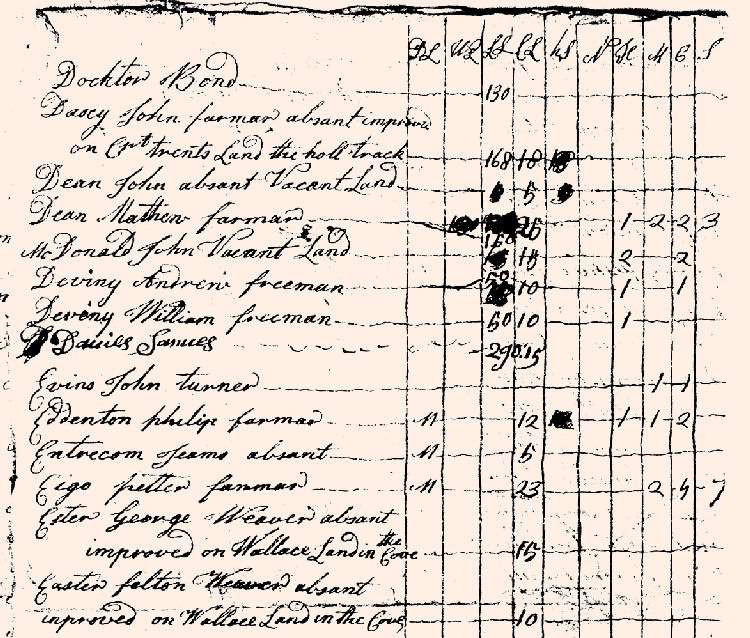 DL UL SL CL N M S
Docktor Bond 130
Dasey John farmar absant improved
on Cpt trents Land the holl track 168 18
Dean John absant Vacant Land 5
Dean Mathew farmar 26 1 2 2 3
McDonald John Vacant Land 18 2 2
Deviny Andrew freeman 10 1 1
Deveny William freeman 50 10 1
Daviies Samuel 290 15
Evins John turner 1 1
Eddenton philip farmar 11 12 1 1 2
Entrecom Jeams absant 11 5
Eigo petter farmar 11 23 2 4 7
Ester George Weaver absant
improved on Wallace Land in the Cove 15
Easter felton Weaver absant
improved on Wallace Land in the Cove 10